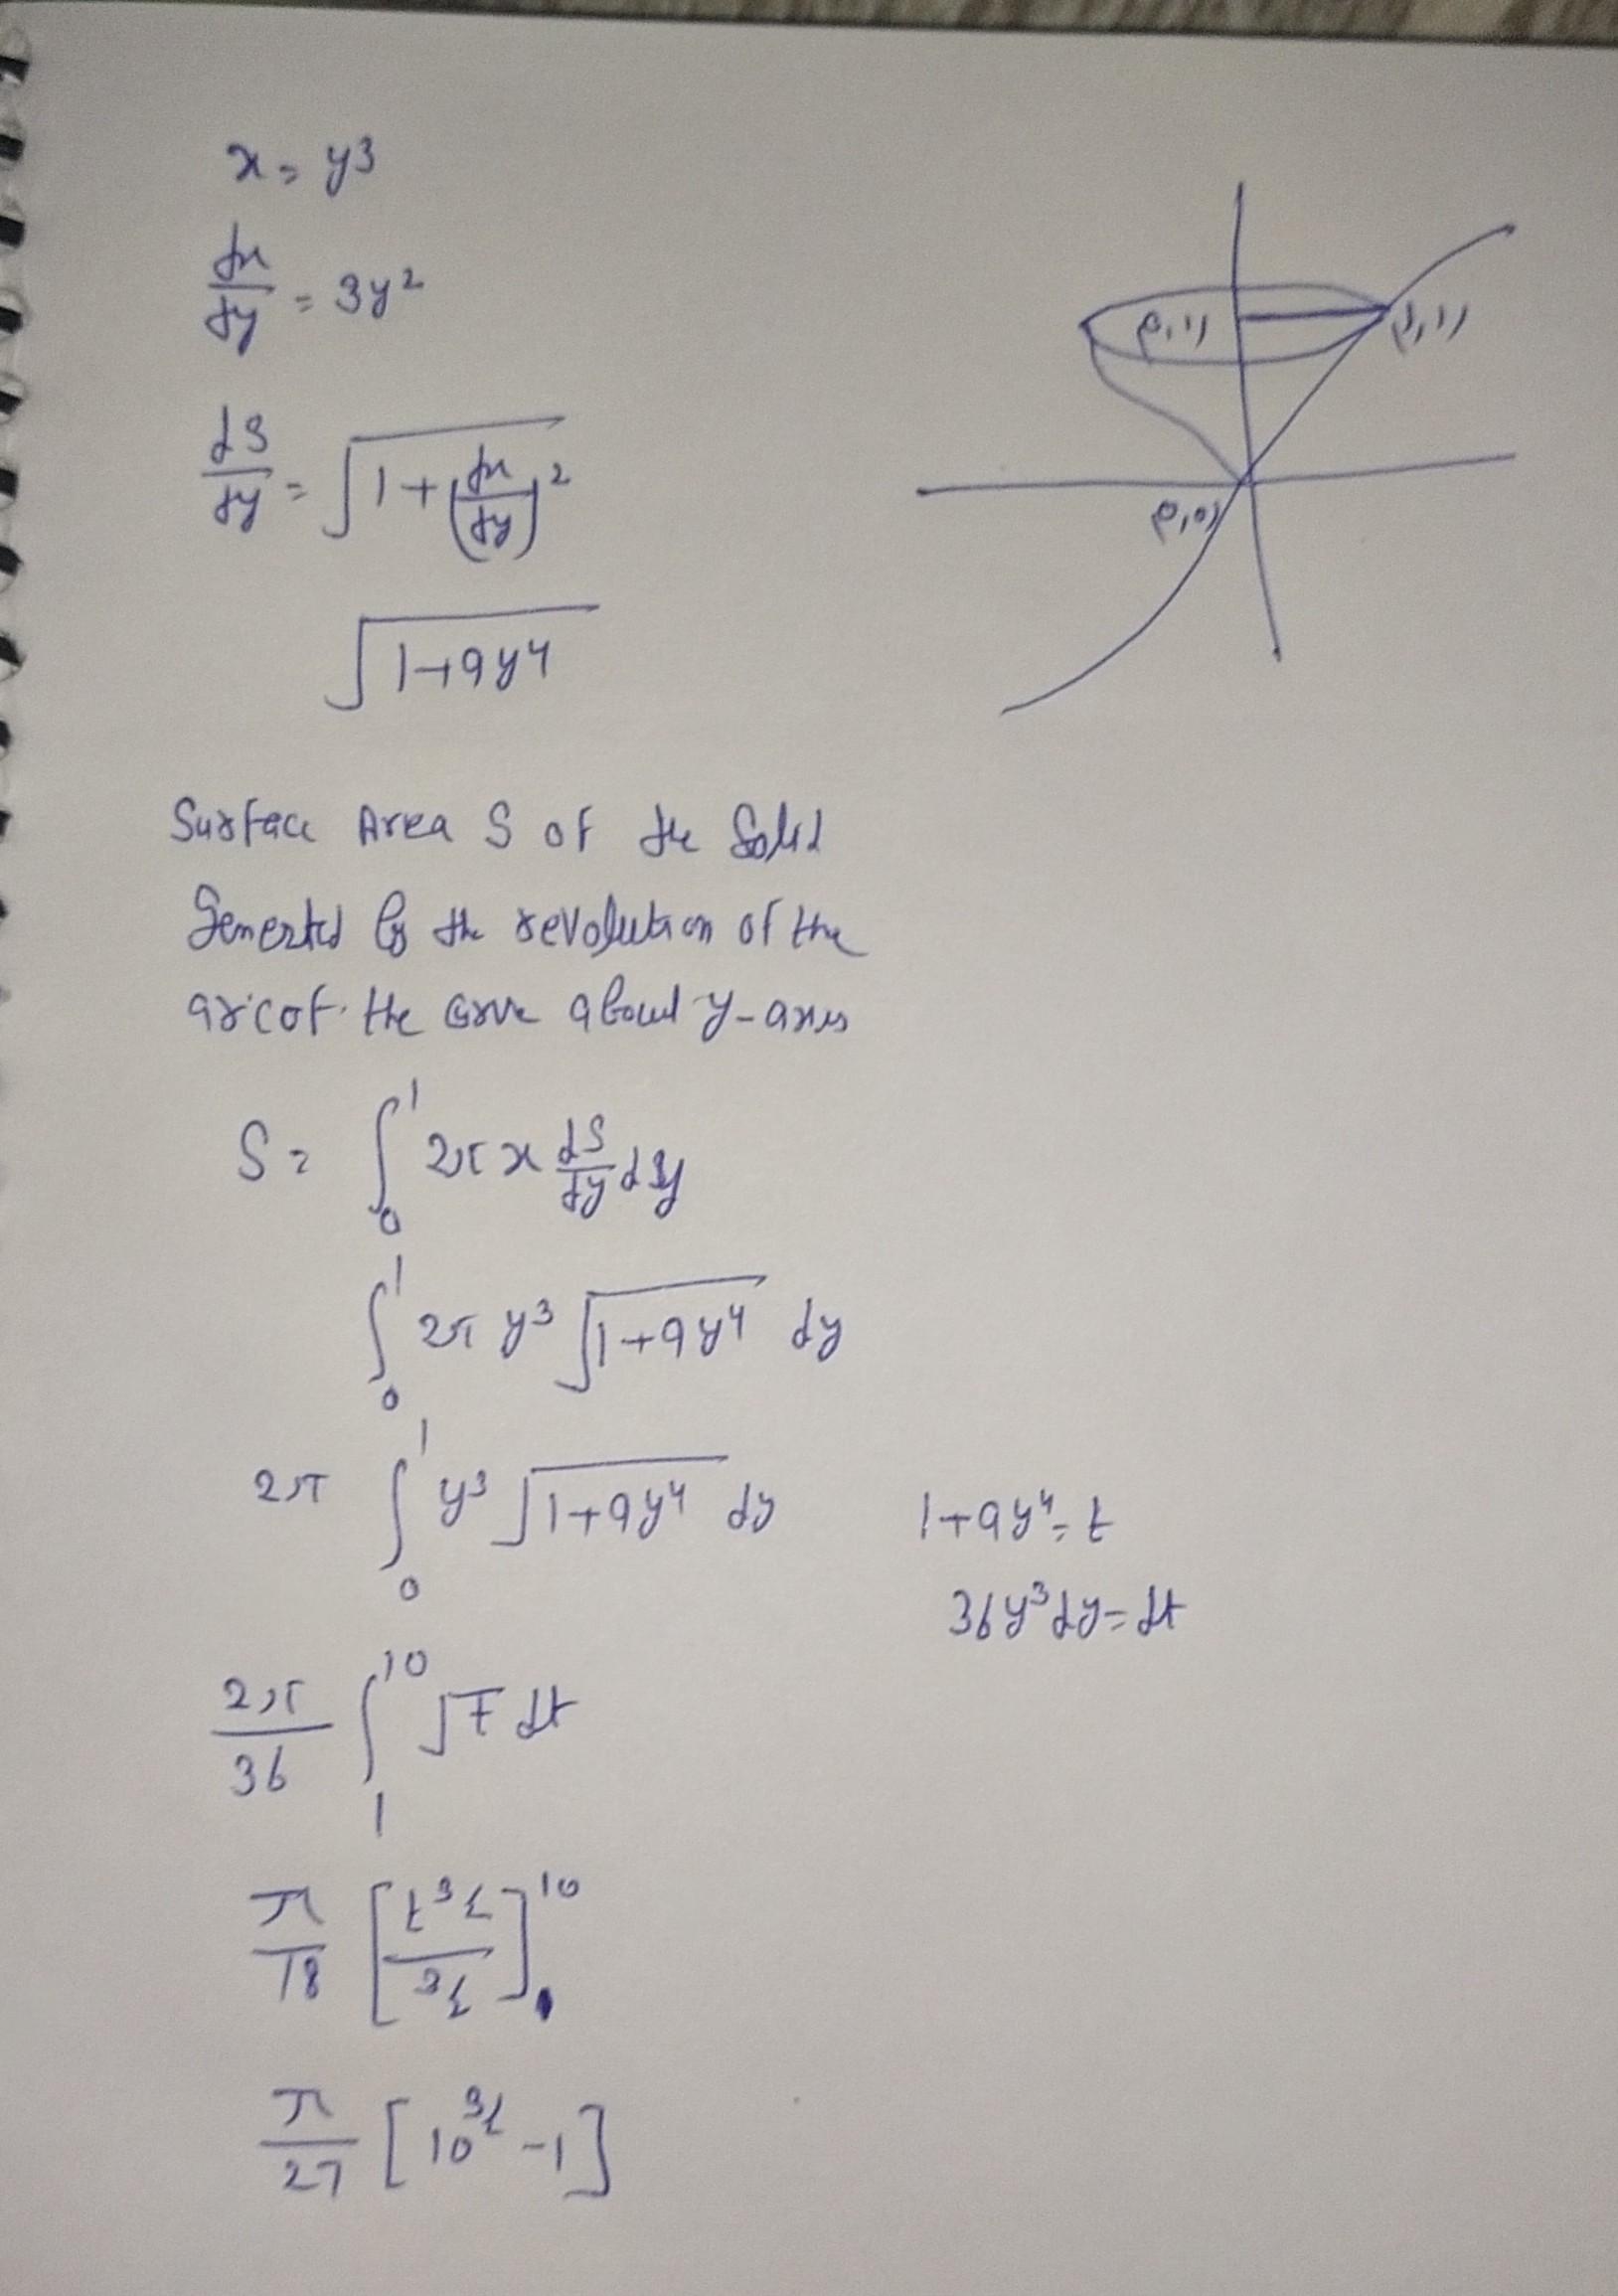 x = y³
dx/dy = 3y²
dS/dy = √(1+(dx/dy)²)
√(1+9y⁴)
(0,1) (1,1)
(0,0)
Surface Area S of the Solid
Generted by the revolution of the
arc of the curve about y-axis
S = ∫₀¹ 2π x dS/dy dy
∫₀¹ 2π y³ √(1+9y⁴) dy
2π ∫₀¹ y³ √(1+9y⁴) dy 1+9y⁴ = t
36y³dy = dt
2π/36 ∫₁¹⁰ √t dt
π/18 [t^(3/2) / (3/2)]₁¹⁰
π/27 [10^(3/2) - 1]